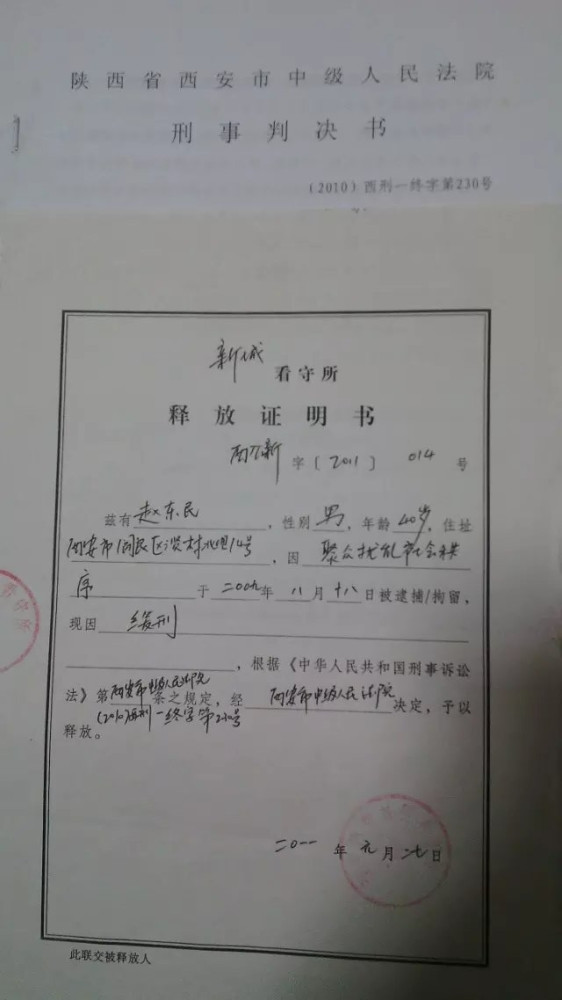 陕西省西安市中级人民法院
刑事判决书
(2010)西刑一终字第230号
新城 看守所
释放证明书
西公新 字〔2011〕014 号
兹有 赵东民 ，性别 男 ，年龄 40岁 ，住址
西安市 区 村 14号 ，因 聚众扰乱社会秩
序 于 二00九年 八 月 十八 日被逮捕/拘留，
现因 缓刑
，根据《中华人民共和国刑事诉讼
法》第 西安市中级人民法院 条之规定，经 西安市中级人民法院 决定，予以
(2010)西刑一终字第230号
释放。
二0一一 年 元 月 二七 日
此联交被释放人